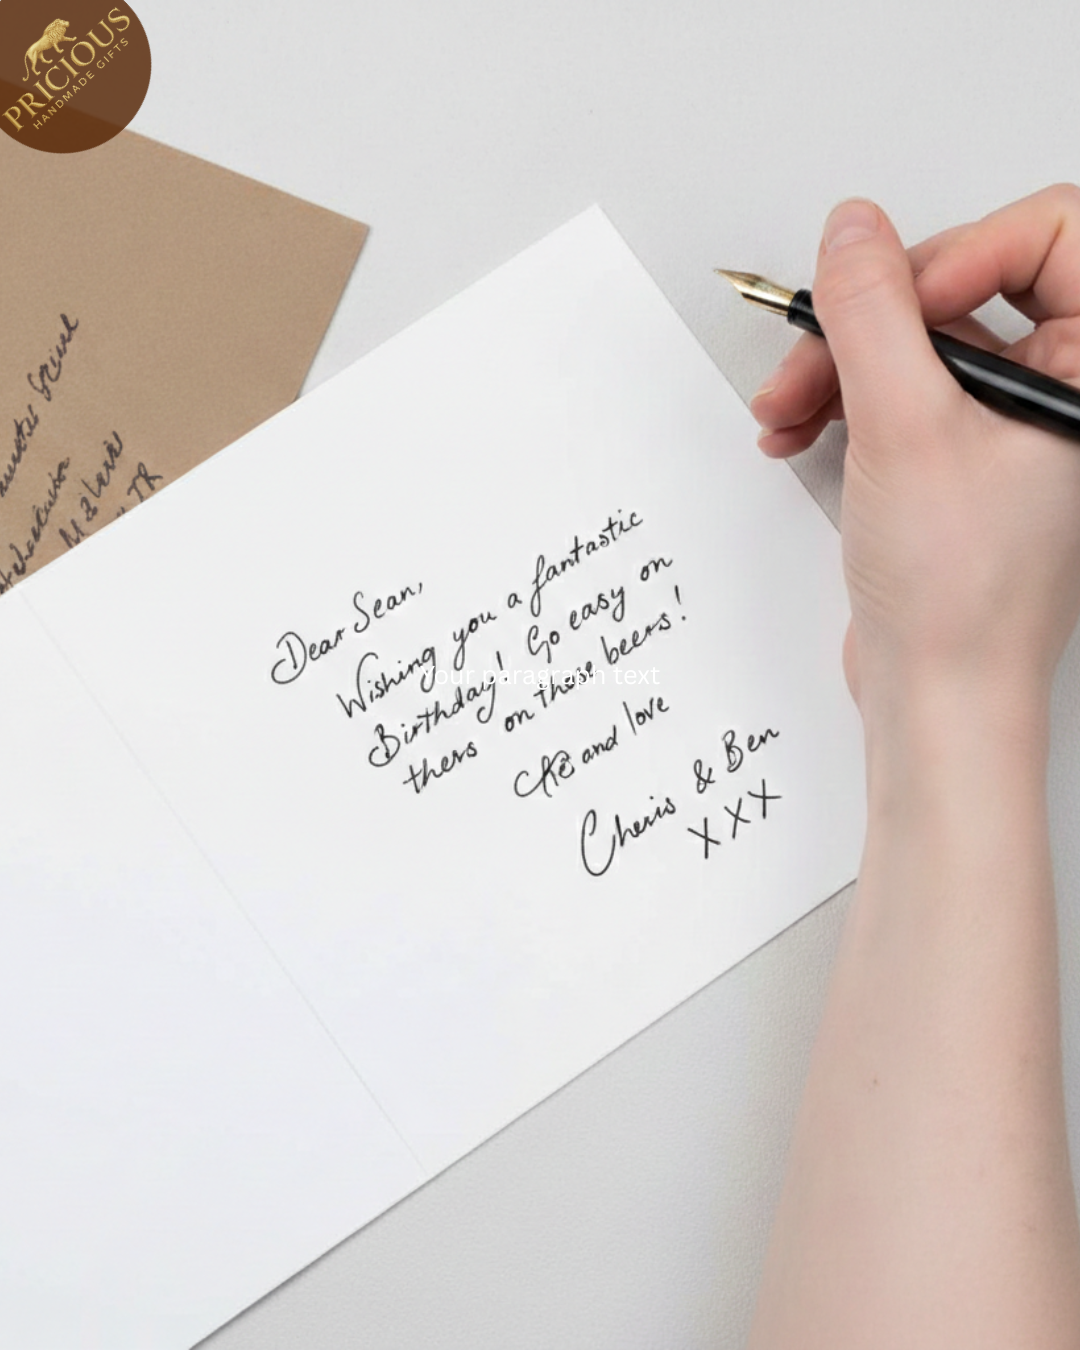 PRICIOUS
HANDMADE GIFTS
Dear Sean,
Wishing you a fantastic
Birthday! Go easy on
thers on those beers!
and love
Cheris & Ben
XXX
Your paragraph text